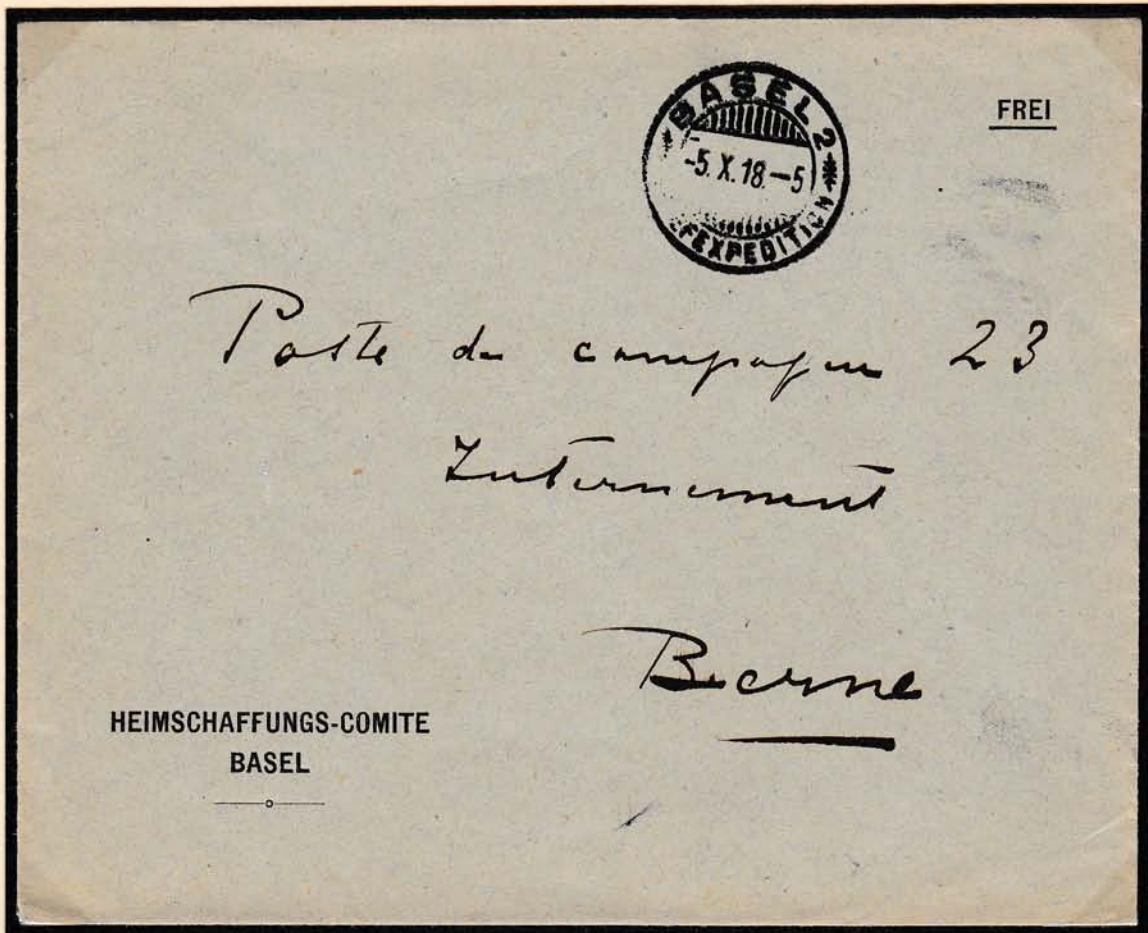 BASEL 2
-5. X. 18.-5
FEXPEDITION
FREI
Poste de campagne 23
Internement
Berne
HEIMSCHAFFUNGS-COMITE
BASEL